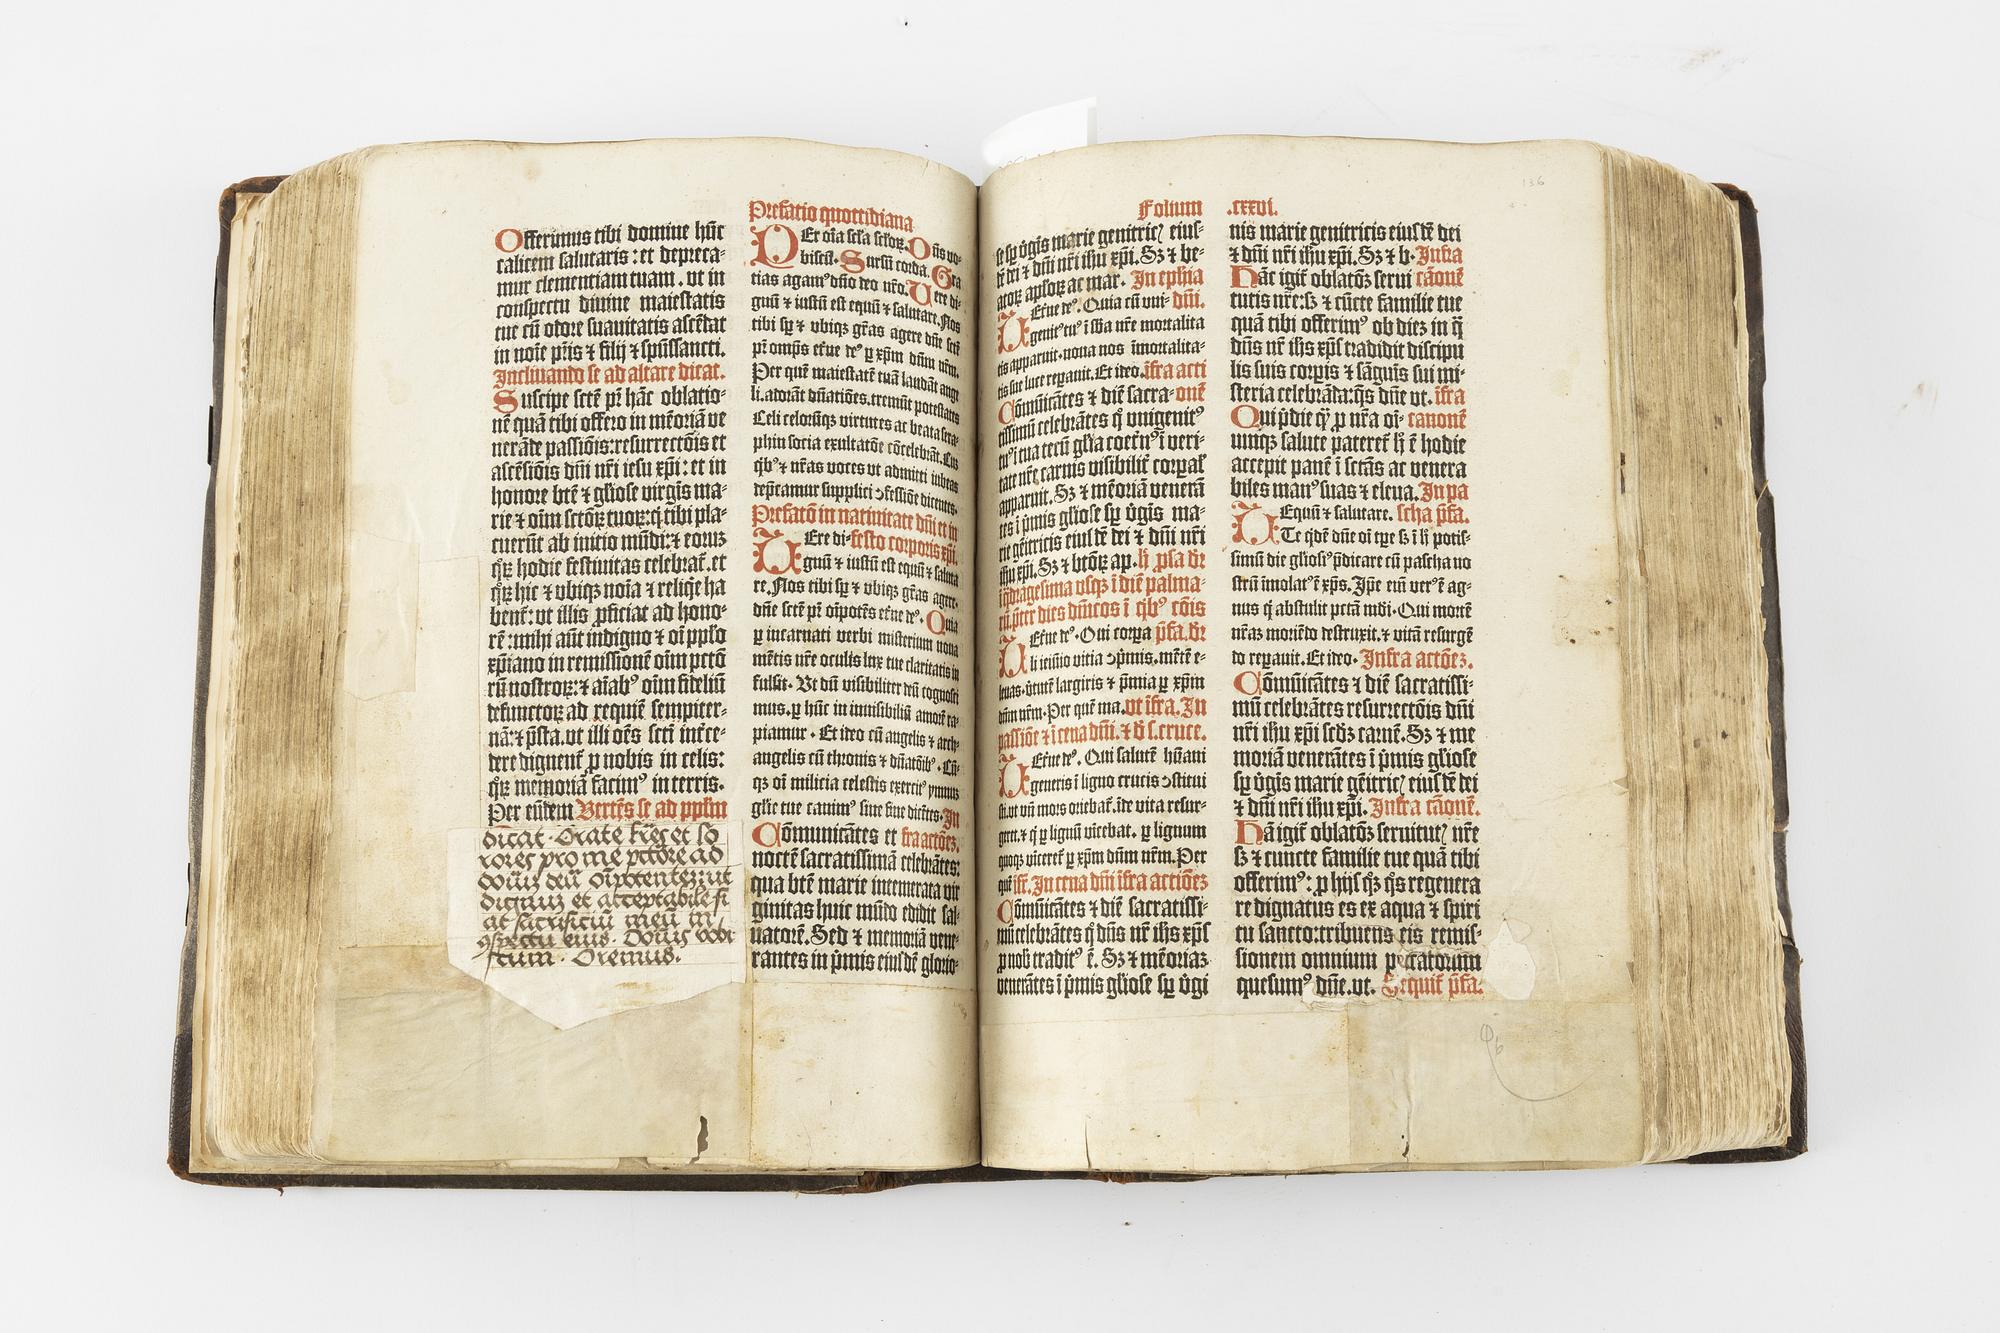 Offerimus tibi domine hūc
calicem salutaris : et depreca-
mur clementiam tuam . ut in
conspectu divine maiestatis
tue cū odore suavitatis ascēdat
in noīe pr̄is ⁊ filij ⁊ spūssancti.
Inclinando se ad altare dicat.
Suscipe sctē pr̄ hāc oblatio-
nē quā tibi offero in mēoriā ve
nerāde passiōis:resurrectōis et
ascēsiōis dn̄i nr̄i iesu xp̄i: et in
honore btē ⁊ gl̄iose virgīs ma-
rie ⁊ oīm sctōꝝ tuoꝝ:q̄ tibi pla-
cuerūt ab initio mūdi:⁊ eoruꝫ
qꝝ hodie festivitas celebrat̄.et
qꝝ hic ⁊ ubiqꝫ noīa ⁊ reliq̄e ha
bent̄:ut illis ꝓficiat ad hono-
rē:mihi aūt indigno ⁊ oī pplo
xp̄iano in remissionē oīm pctō
rū nostroꝝ:⁊ aīabꝰ oīm fideliū
defunctoꝝ ad requiē sempiter-
nā:⁊ p̄sta.ut illi oēs sctī intͬce-
dere dignent̄ ꝓ nobis in celis:
qꝝ memoriā facimꝰ in terris.
Per eūdem Vertēs se ad pplm̄
dicat. Orate fr̄es et so
rores pro me pctōre ad
dn̄m deū oīpotenteꝫ:ut
dignū et acceptabile fi
at sacrificiū meū in
ꝯspectu eius. Dn̄us vobi
scum. Oremus.
Prefatio quottidiana
Per oīa scl̄a scl̄oꝝ. Dn̄s vo-
biscū. Sursū corda. Gra
tias agamꝰ dn̄o deo nr̄o. Vere di-
gnū ⁊ iustū est equū ⁊ salutare.Nos
tibi sꝑ ⁊ ubiqꝫ gr̄as agere dn̄e sctē
pr̄ omp̄s et̄ne deꝰ ꝑ xp̄m dn̄m nr̄m.
Per quē maiestatē tuā laudāt ange
li.adorāt dn̄atiōes.tremūt potestates
Celi celorūqꝫ virtutes ac beata sera-
phin socia exultatōe cōcelebrāt.Cum
qͥbꝰ ⁊ nr̄as voces ut admitti iubeas
dep̄camur supplici ꝯfessiōe dicentes.
Prefatō in nativitate dn̄i et in
Vere di-festo corporis xp̄i.
gnū ⁊ iustū est equū ⁊ saluta
re.Nos tibi sꝑ ⁊ ubiqꝫ gr̄as agere.
dn̄e sctē pr̄ oīpotēs et̄ne deꝰ. Quia
ꝑ incarnati verbi misterium nova
mētis nr̄e oculis lux tue claritatis in
fulsit. Ut dū visibiliter deū cognosci
mus.ꝑ hūc in invisibiliū amorē ra-
piamur . Et ideo cū angelis ⁊ arch-
angelis cū thronis ⁊ dn̄atōibꝰ. Cū-
qꝫ oī milicia celestis exercitꝰ ymnuꝫ
gl̄ie tue canimꝰ sine fine dicētes. In
Cōmunicātes et fra actōeꝫ.
noctē sacratissimā celebrātes:
qua btē marie intemerata vir
ginitas huic mūdo edidit sal-
vatorē.Sed ⁊ memoriā vene-
rantes in p̄mis eiusdē glorio-
Folium .cxxvi.
se sꝑ v̄gīs marie genitricꝭ eius-
dē dei ⁊ dn̄i nr̄i ihū xp̄i. Sꝫ ⁊ be-
atoꝝ apl̄oꝝ ac mar. In ep̄hīa
Et̄ne deꝰ. Quia cū uni- dn̄i.
genitꝰ tuꝰ ī sb̄a nr̄e mortalita
tis apparuit.nova nos īmortalita-
tis sue luce reparavit.Et ideo.īfra acti
Cōmūicātes ⁊ diē sacra-onē
tissimū celebrātes qͦ unigenitꝰ
tuꝰ ī tua tecū gl̄ia coet̄nꝰ ī veri-
tate nr̄e carnis visibilit̄ corpal̄
apparuit. Sꝫ ⁊ mēoriā venerā
tes ī p̄mis gl̄iose sꝑ v̄gīs ma-
rie gēitricis eiusdē dei ⁊ dn̄i nr̄i
ihū xp̄i. Sꝫ ⁊ btōꝝ ap. h̄ p̄fa dr̄
ī q̄dragesima usqꝫ ī diē palma-
rū p̄ter dies dn̄icos ī qͥbꝰ cōis
Et̄ne deꝰ. Qui corpa p̄fa.dr̄
li ieiunio vitia ꝯp̄mis.mētē e-
levas.v̄tutē largiris ⁊ p̄mia ꝑ xp̄m
dn̄m nr̄m. Per quē ma.ut īfra. In
passiōe ⁊ ī cena dn̄i. ⁊ d̄ s.cruce.
Et̄ne deꝰ. Qui salutē hūani
generis ī ligno crucis ꝯstitui
sti.ut un̄ mors oriebat̄.īde vita resur-
geret.⁊ qͥ ꝑ lignū vīcebat. ꝑ lignum
quoqꝫ vīceret̄ ꝑ xp̄m dn̄m nr̄m. Per
quē īfr. In cena dn̄i īfra actiōeꝫ
Cōmūicātes ⁊ diē sacratissi-
mū celebrātes qͦ dn̄s nr̄ ihs xp̄s
ꝓ nob̄ traditꝰ ē. Sꝫ ⁊ mēoriaꝫ
venerātes ī p̄mis gl̄iose sꝑ v̄gi
nis marie genitricis eiusdē dei
⁊ dn̄i nr̄i ihū xp̄i. Sꝫ ⁊ b. Infra
Hāc igit̄ oblatōꝫ servi cānonē
tutis nr̄e:sꝫ ⁊ cūcte familie tue
quā tibi offerimꝰ ob dieꝫ in q̄
dn̄s nr̄ ihs xp̄s tradidit discipu
lis suis corpis ⁊ sāguīs sui mi-
steria celebrāda:q̄s dn̄e ut. īfra
Qui p̄die qͣꝫ ꝓ nr̄a oī- canonē
umqꝫ salute pateret̄ h̄ ē hodie
accepit panē ī sctās ac venera
biles manꝰ suas ⁊ eleva. In pa
Equū ⁊ salutare. scha p̄fa.
Te qͥdē dn̄e oī tꝑe sꝫ ī h̄ potis-
simū die gl̄iosiꝰ p̄dicare cū pascha no
strū īmolatꝰ ē xp̄s. Ip̄e eni verꝰ ē ag-
nus qͥ abstulit pctā mūdi. Qui mortē
nr̄aꝫ moriēdo destruxit.⁊ vitā resurgē
do reparavit. Et ideo. Infra actōeꝫ.
Cōmūicātes ⁊ diē sacratissi-
mū celebrātes resurrectōis dn̄i
nr̄i ihū xp̄i scd̄ꝫ carnē. Sꝫ ⁊ me
moriā venerātes ī p̄mis gl̄iose
sꝑ v̄gīs marie gēitricꝭ eiusdē dei
⁊ dn̄i nr̄i ihū xp̄i. Infra cānonē.
Hāc igit̄ oblatōꝫ servitutꝭ nr̄e
sꝫ ⁊ cuncte familie tue quā tibi
offerimꝰ: ꝓ hijs qͦꝫ qͦs regenera
re dignatus es ex aqua ⁊ spiri
tu sancto:tribuens eis remis-
sionem omnium peccatorum
quesumꝰ dn̄e.ut. Sequit̄ p̄fa.
136